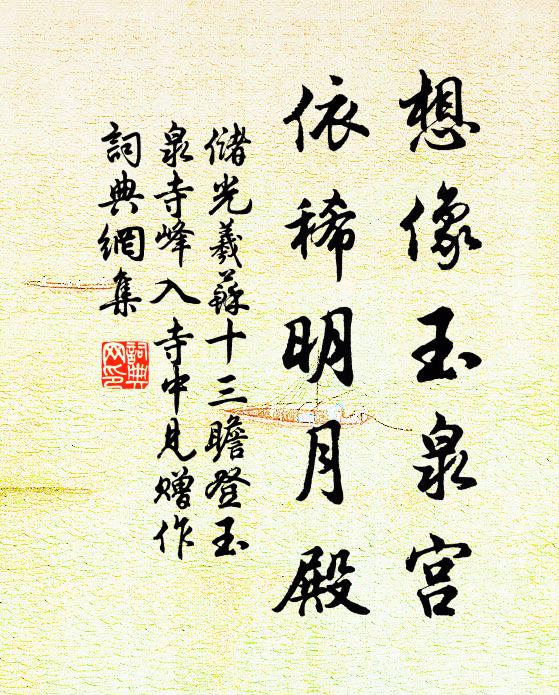 想像玉泉宮
依稀明月殿
儲光羲蘇十三瞻登玉
泉寺峰入寺中見贈作
詞典網集
詞典
网印